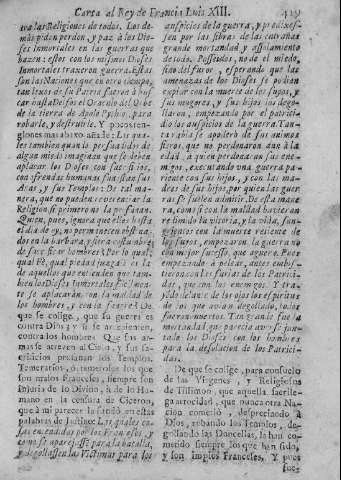 Carta al Rey de Francia Luis XIII.
tra las Religiones de todos. Los de-
más piden perdon, y paz à los Dioses
Inmortales en las guerras que
hazen: estos con los mismos Dioses
Inmortales traxeron guerra. Estos
son las Naciones que en otro tiempo,
tan lexos de su Patria fueron à bus-
car hasta Delfos el Oraculo del Orbe
de la tierra de Apolo Pythio, para
robarle, y destruirle. Y
mas abaxo añade: Los qua-
les tambien quando persuadidos de
algun miedo imaginan que se deben
aplacar los Dioses con sacrificios,
con ofrendas humanas funestan sus
Aras, y sus Templos: De tal ma-
nera, que no pueden reverenciar la
Religion si primero no la profanan.
Quien, pues, ignora que ellos hasta
el dia de oy, no permanecen obstina-
dos en la barbara, y fiera costumbre
de sacrificar hombres? Por lo qual,
qual Fè, qual piedad juzgais es la
de aquellos que entienden que tam-
bien los Dioses Inmortales facilmen-
te se aplacaràn con la maldad de
los hombres, y con la sangre? De
que se colige, que su guerra es
contra Dios; y si se arrepienten,
contra los hombres. Que sus ar-
mas se atreven al Cielo, y sus sa-
crificios profanan los Templos.
Temerarios, ò temerosos los que
son malos Franceses, siempre son
injuria de lo Divino, à de lo Hu-
mano en la censura de Ciceron,
que à mi parecer la fundò en estas
palabras de Justino: Los quales co-
sas entendidas por los Franceses, y
como se aparejasse para la batalla,
y degollassen las Victimas para los
auspicios de la guerra, y
sen por las fibras de las entrañas
grande mortandad, y assolamiento
de todo. Posseidos, no de el miedo,
sino del furor, esperando que las
amenazas de los Dioses se podian
expiar con la muerte de los suyos, y
sus mugeres, y sus hijos los dego-
llaron, empezando por el patricidio
los auspicios de la guerra. Tan-
ta rabia se apoderò de sus animos
fieros, que no perdonaron aun à la
edad, à quien perdonaran sus ene-
migos, executando una guerra pa-
rriente con sus hijos, y con las ma-
dres de sus hijos, por quien las guer-
ras se suelen admitir. De esta mane-
ra, como si con la maldad huvieran
redimido la vitoria, y la vida, san-
grientos con la muerte reciente de
los suyos, empezaron la guerra no
con mejor sucesso, que aguero. Pues
empezando à pelear, antes
las furias de los Patrici-
das, que con los enemigos. Y tra-
yendo delante de los ojos los espiritus
de los que avian degollado, todos
fueron muertos. Tan grande fue la
mortandad que parecia aver se jun-
tado los Dioses con los hombres
para la desolacion de los Patrici-
das.
De que se colige, para consuelo
de las Virgenes, y Religiosos
de Tillimon, que aquella sacrile-
ga atrocidad, que nunca otra Na-
cion cometiò, despreciando à
Dios, robando los Templos, de-
gollando las Doncellas, la han co-
metido siempre los que han sido,
y son impios Franceses. Y pues
fues